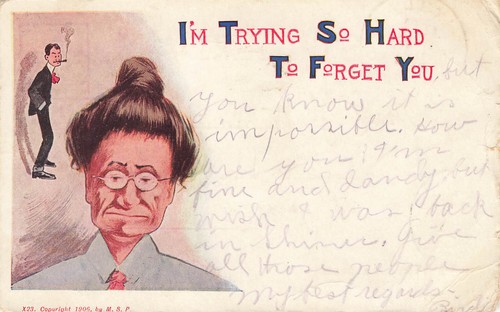 I'M TRYING SO HARD
TO FORGET YOU, but
you know it is
impossible. How
are you? I'm
fine and dandy but
wish I was back
in
Give
all those people
my best regards-
X23. Copyright 1906, by M. S. P.